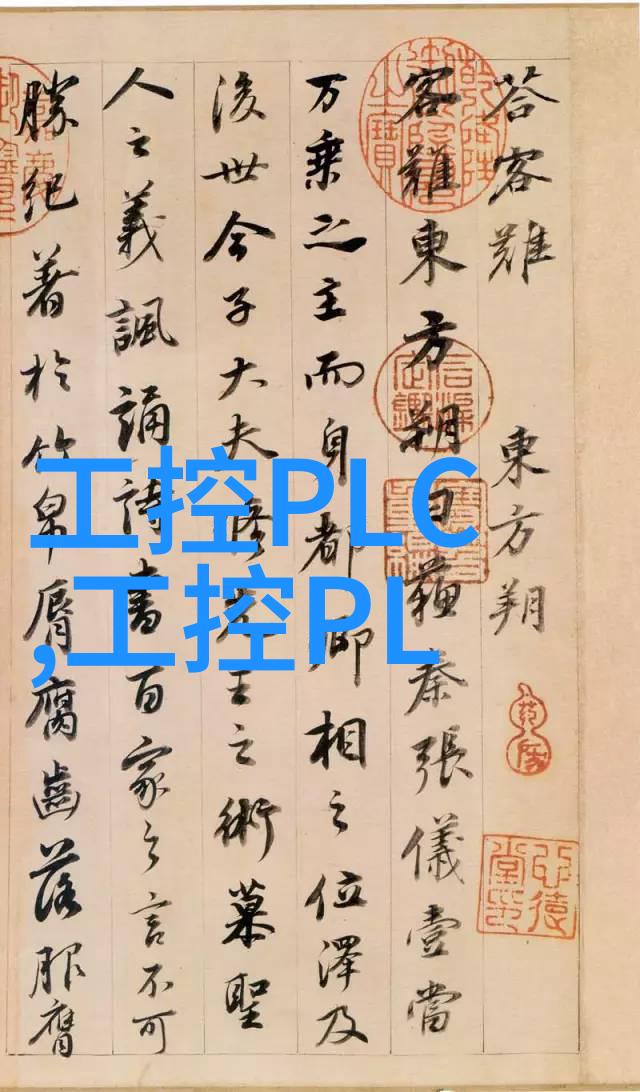 答客難 東方朔
客難東方朔曰蘇秦張儀壹當
万乘之主而身都卿相之位澤及
後世今子大夫脩先王之術慕聖
人之義諷誦詩書百家之言不可
勝紀著於竹帛脣腐齒落服膺
工控PLC
,工控PL